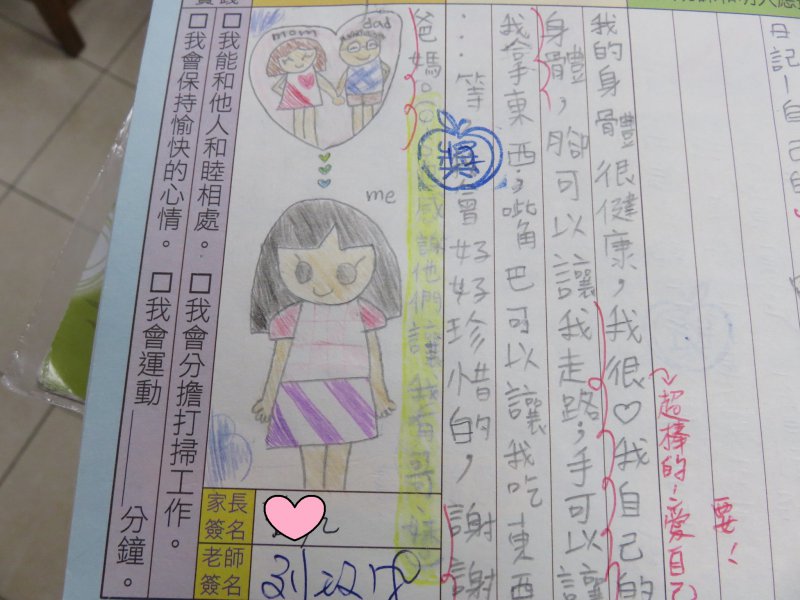 日記一自己的
要！
超棒的，愛自己
我的身體很健康，我很♡我自己的
身體，腳可以讓我走路；手可以讓
我拿東西；嘴角巴可以讓我吃東西
⋯等 會好好珍惜的，謝謝
爸媽。 感謝他們讓我有
獎
mom
dad
me
家長簽名
老師簽名
□我能和他人和睦相處。 □我會分擔打掃工作。
□我會保持愉快的心情。 □我會運動＿＿＿分鐘。